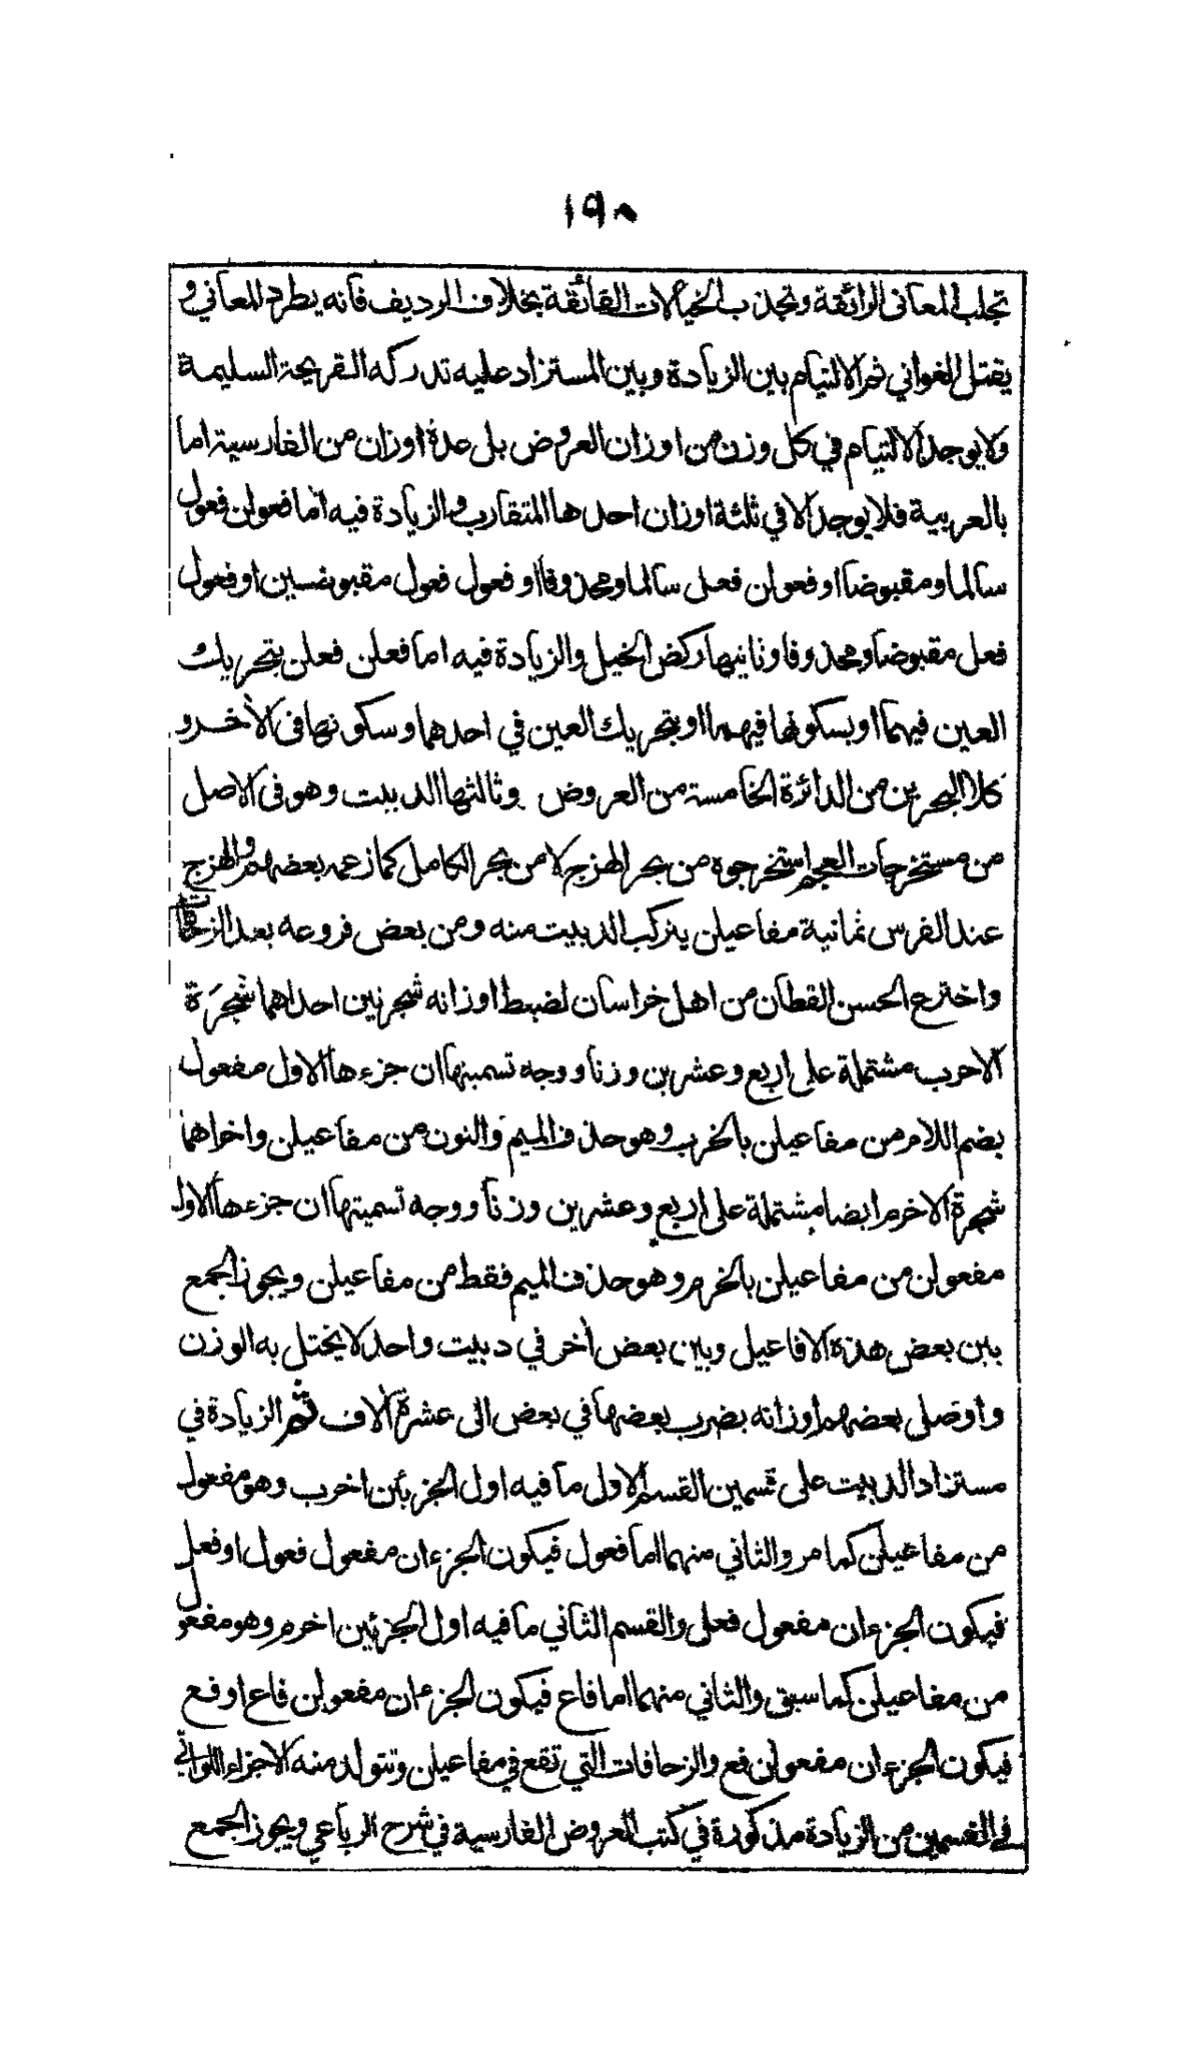 ١٩٨
تجلب المعاني الرائقة وتجذب الخيالات الفائقة بخلاف الرديف فانه يطرد المعاني و
يقتل الغواني ثم الالتيام بين الزيادة وبين المستزاد عليه تدركه القريحة السليمة
ولا يوجد الالتيام في كل وزن من اوزان العروض بل عدة اوزان من الفارسية اما
بالعربية فلا يوجد الا في ثلثة اوزان احدها المتقارب والزيادة فيه اما فعولن فعول
سالما ومقبوضا او فعولن فعل سالما ومحذوفا او فعول فعول مقبوضين او فعول
فعل مقبوضا ومحذوفا وثانيها ركض الخيل والزيادة فيه اما فعلن فعلن بتحريك
العين فيهما او بسكونها فيهما او بتحريك العين في احدهما وسكونها في الأخر و
كلا البحرين من الدائرة الخامسة من العروض وثالثها الدبيت وهو في الاصل
من مستخرجات العجم استخرجوه من بحر الهزج لا من بحر الكامل كما زعمه بعضهم والهزج
عند الفرس ثمانية مفاعيلن يتركب الدبيت منه ومن بعض فروعه بعد الزحافات
واخترع الحسن القطان من اهل خراسان لضبط اوزانه شجرتين احداهما شجرة
الاخرب مشتملة على اربع وعشرين وزنا ووجه تسميتها ان جزءها الاول مفعول
بضم اللام من مفاعيلن بالخرب وهو حذف الميم والنون من مفاعيلن واخراهما
شجرة الاخرم ايضا مشتملة على اربع وعشرين وزنا ووجه تسميتها ان جزءها الاول
مفعولن من مفاعيلن بالخرم وهو حذف الميم فقط من مفاعيلن ويجوز الجمع
بين بعض هذه الافاعيل وبين بعض أخر في دبيت واحد لا يختل به الوزن
واوصلى بعضهم اوزانه بضرب بعضها في بعض الى عشرة آلاف ثم الزيادة في
مستزاد الدبيت على قسمين القسم الاول ما فيه اول الجزئين اخرب وهو مفعول
من مفاعيلن كما مر والثاني منهما اما فعول فيكون الجزءان مفعول فعول او فعل
فيكون الجزءان مفعول فعل والقسم الثاني ما فيه اول الجزئين اخرم وهو مفعولن
من مفاعيلن كما سبق والثاني منهما اما فاع فيكون الجزءان مفعولن فاع او فع
فيكون الجزءان مفعولن فع والزحافات التي تقع في مفاعيلن وتتولد منه الاجزاء اللواتي
في القسمين من الزيادة مذكورة في كتب العروض الفارسية في شرح الرباعي ويجوز الجمع